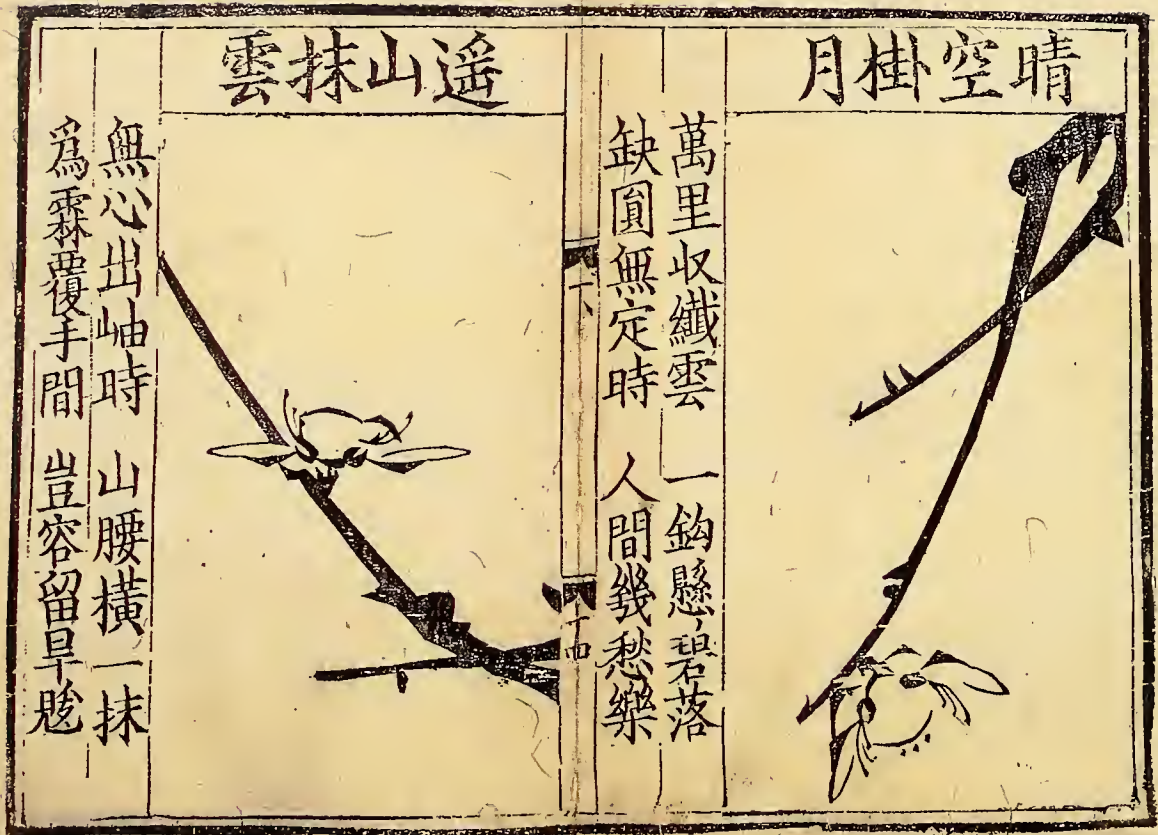 晴空掛月
萬里収纖雲 一鈎懸碧落
缺圓無定時 人間幾愁樂
下
十四
遥山抹雲
無心出岫時 山腰横一抹
爲霖覆手間 豈容留旱魃